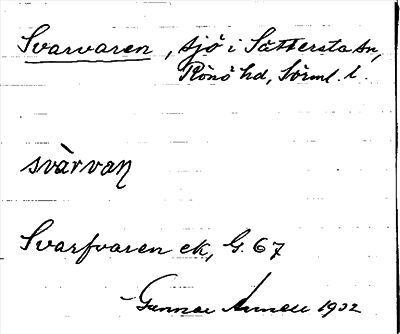 Svarvaren, sjö i Sättersta sn,
Rönö hd, Sörml. l.
svàrvaṇ
Svarfvaren ek, G. 67
Gunnar Annell 1932